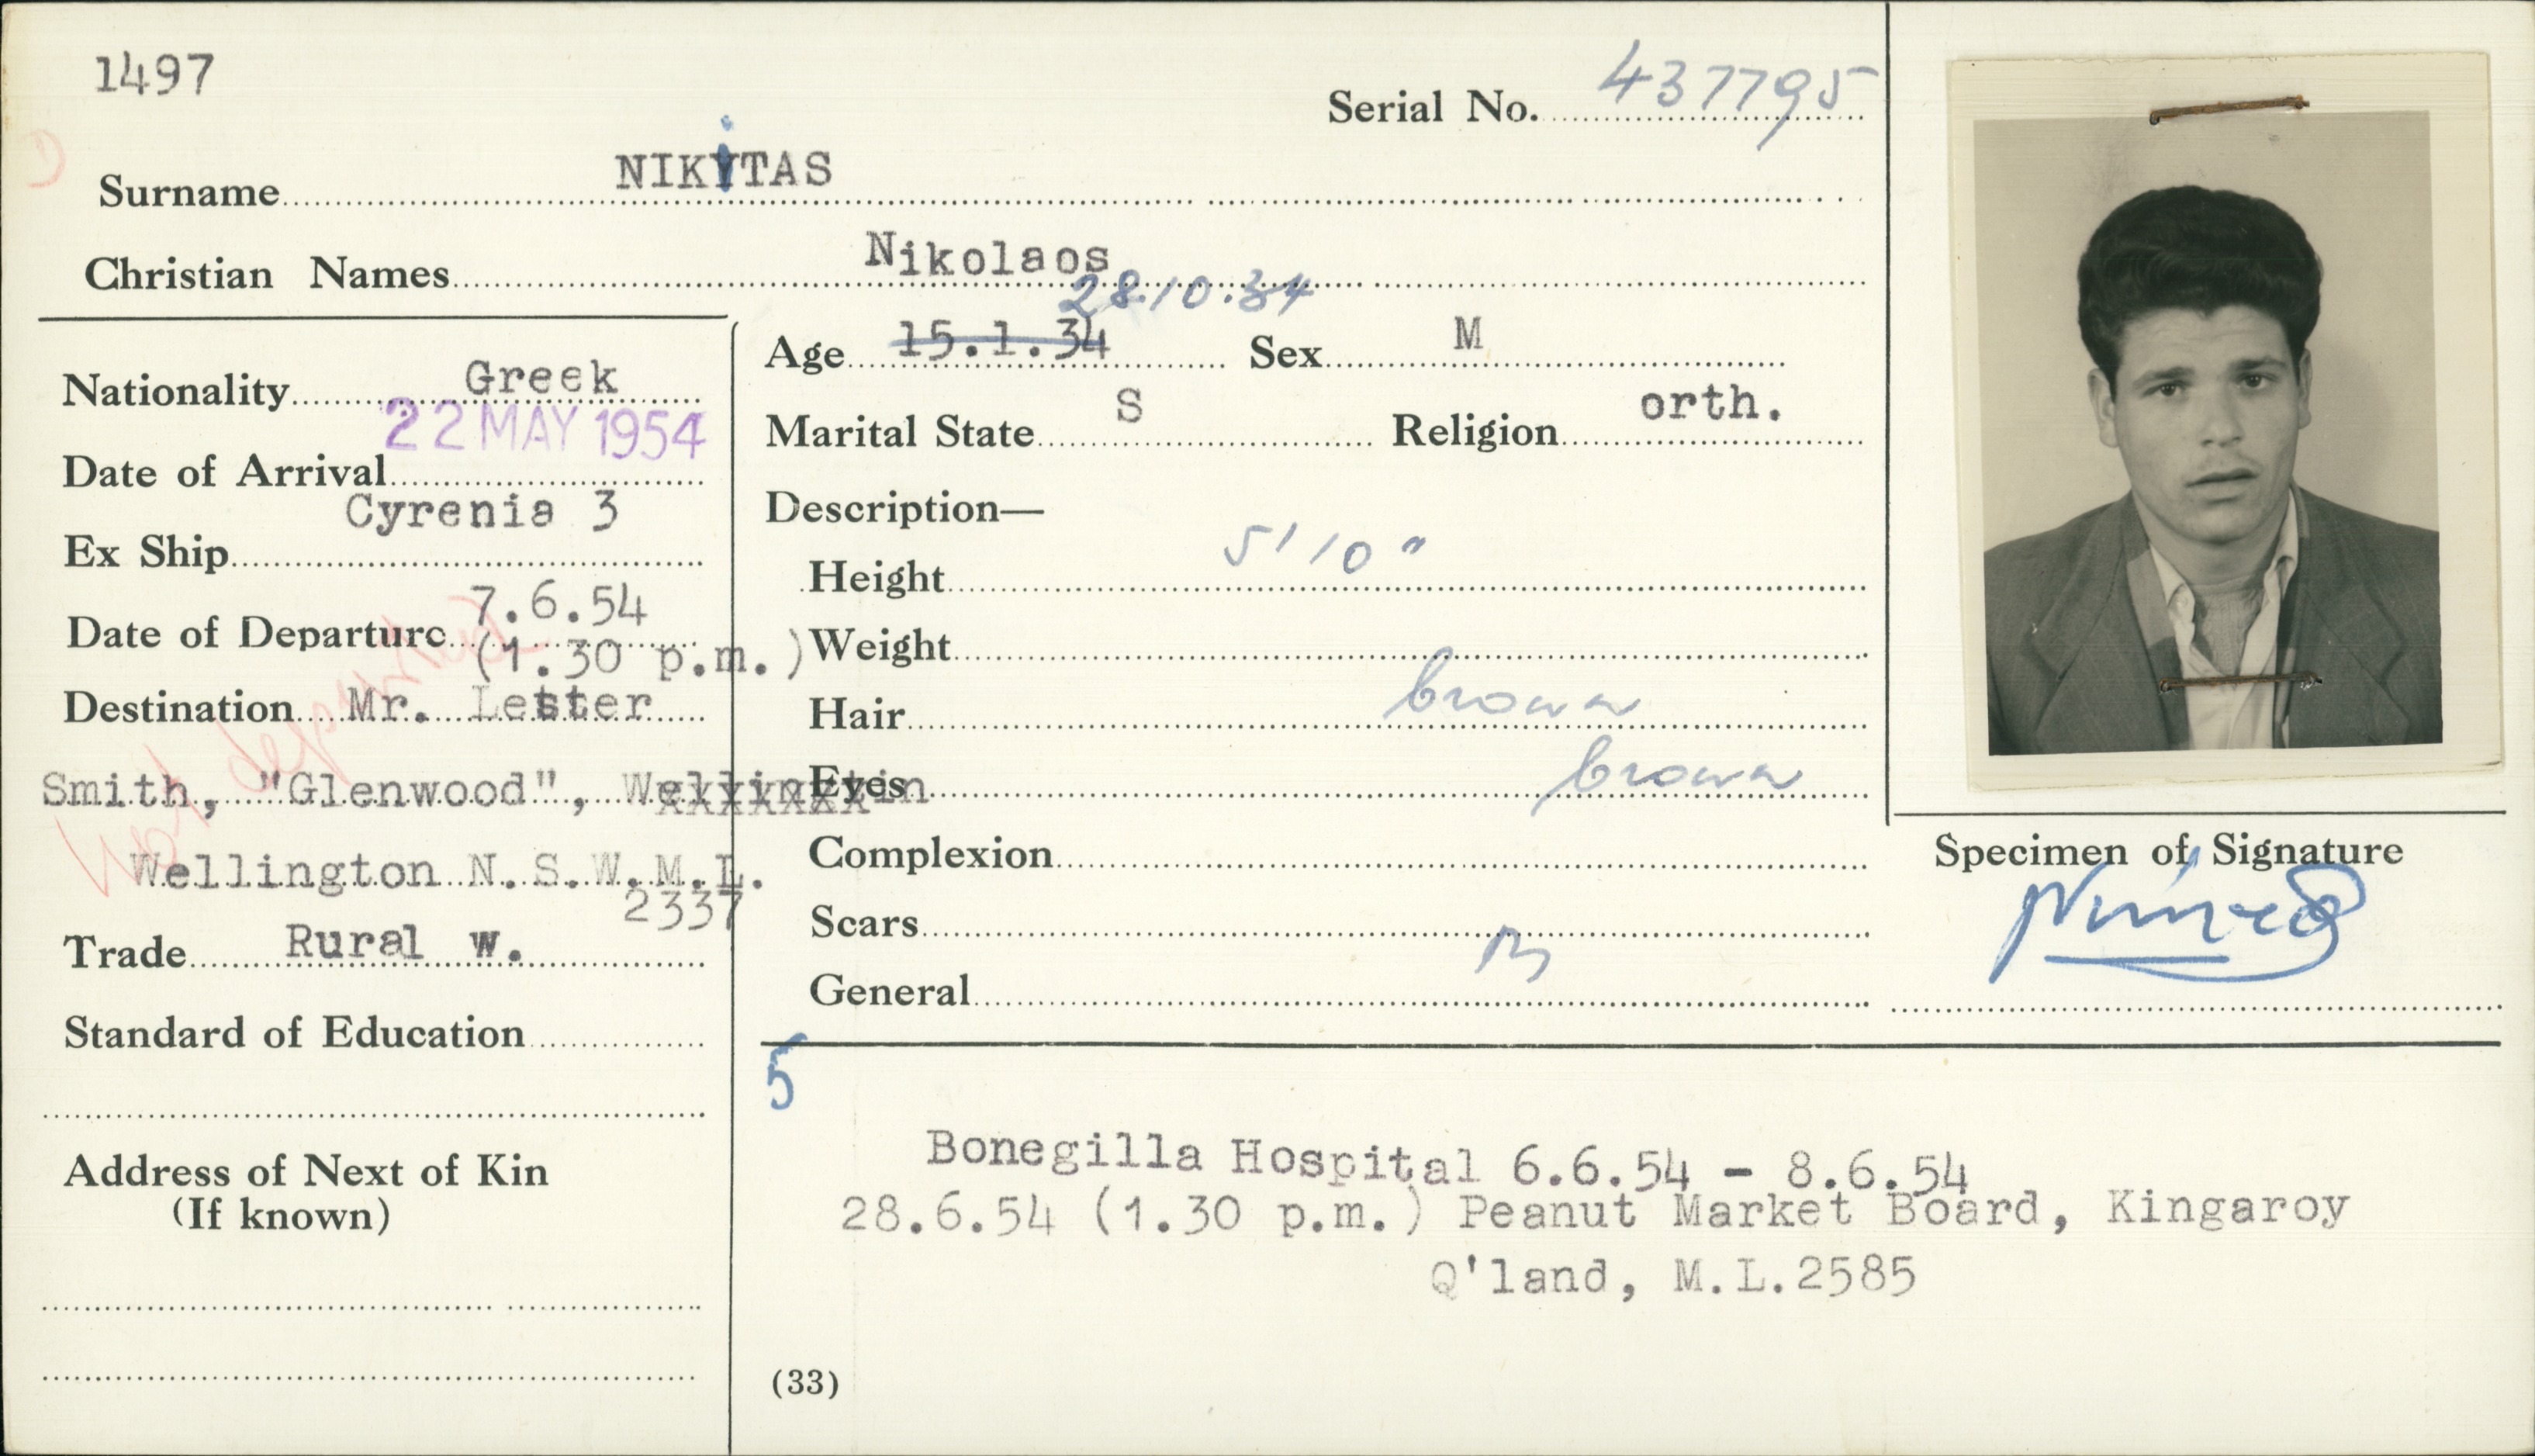 1497
Serial No. 437795
Surname NIKiTAS
Christian Names Nikolaos
28.10.34
Age 15.1.34 Sex M
Nationality Greek
Marital State S Religion orth.
22 MAY 1954
Date of Arrival
Description—
Cyrenia 3
Ex Ship
Height 5'10"
Date of Departure 7.6.54
(1.30 p.m.)
Weight
Destination Mr. Lester
Hair brown
Smith, "Glenwood", Wellington
Eyes brown
Not departed
Wellington N.S.W. M.L.
2337
Complexion
Scars
Trade Rural w.
General
Standard of Education
Specimen of Signature
5
Address of Next of Kin
(If known)
Bonegilla Hospital 6.6.54 - 8.6.54
28.6.54 (1.30 p.m.) Peanut Market Board, Kingaroy
Q'land, M.L.2585
(33)